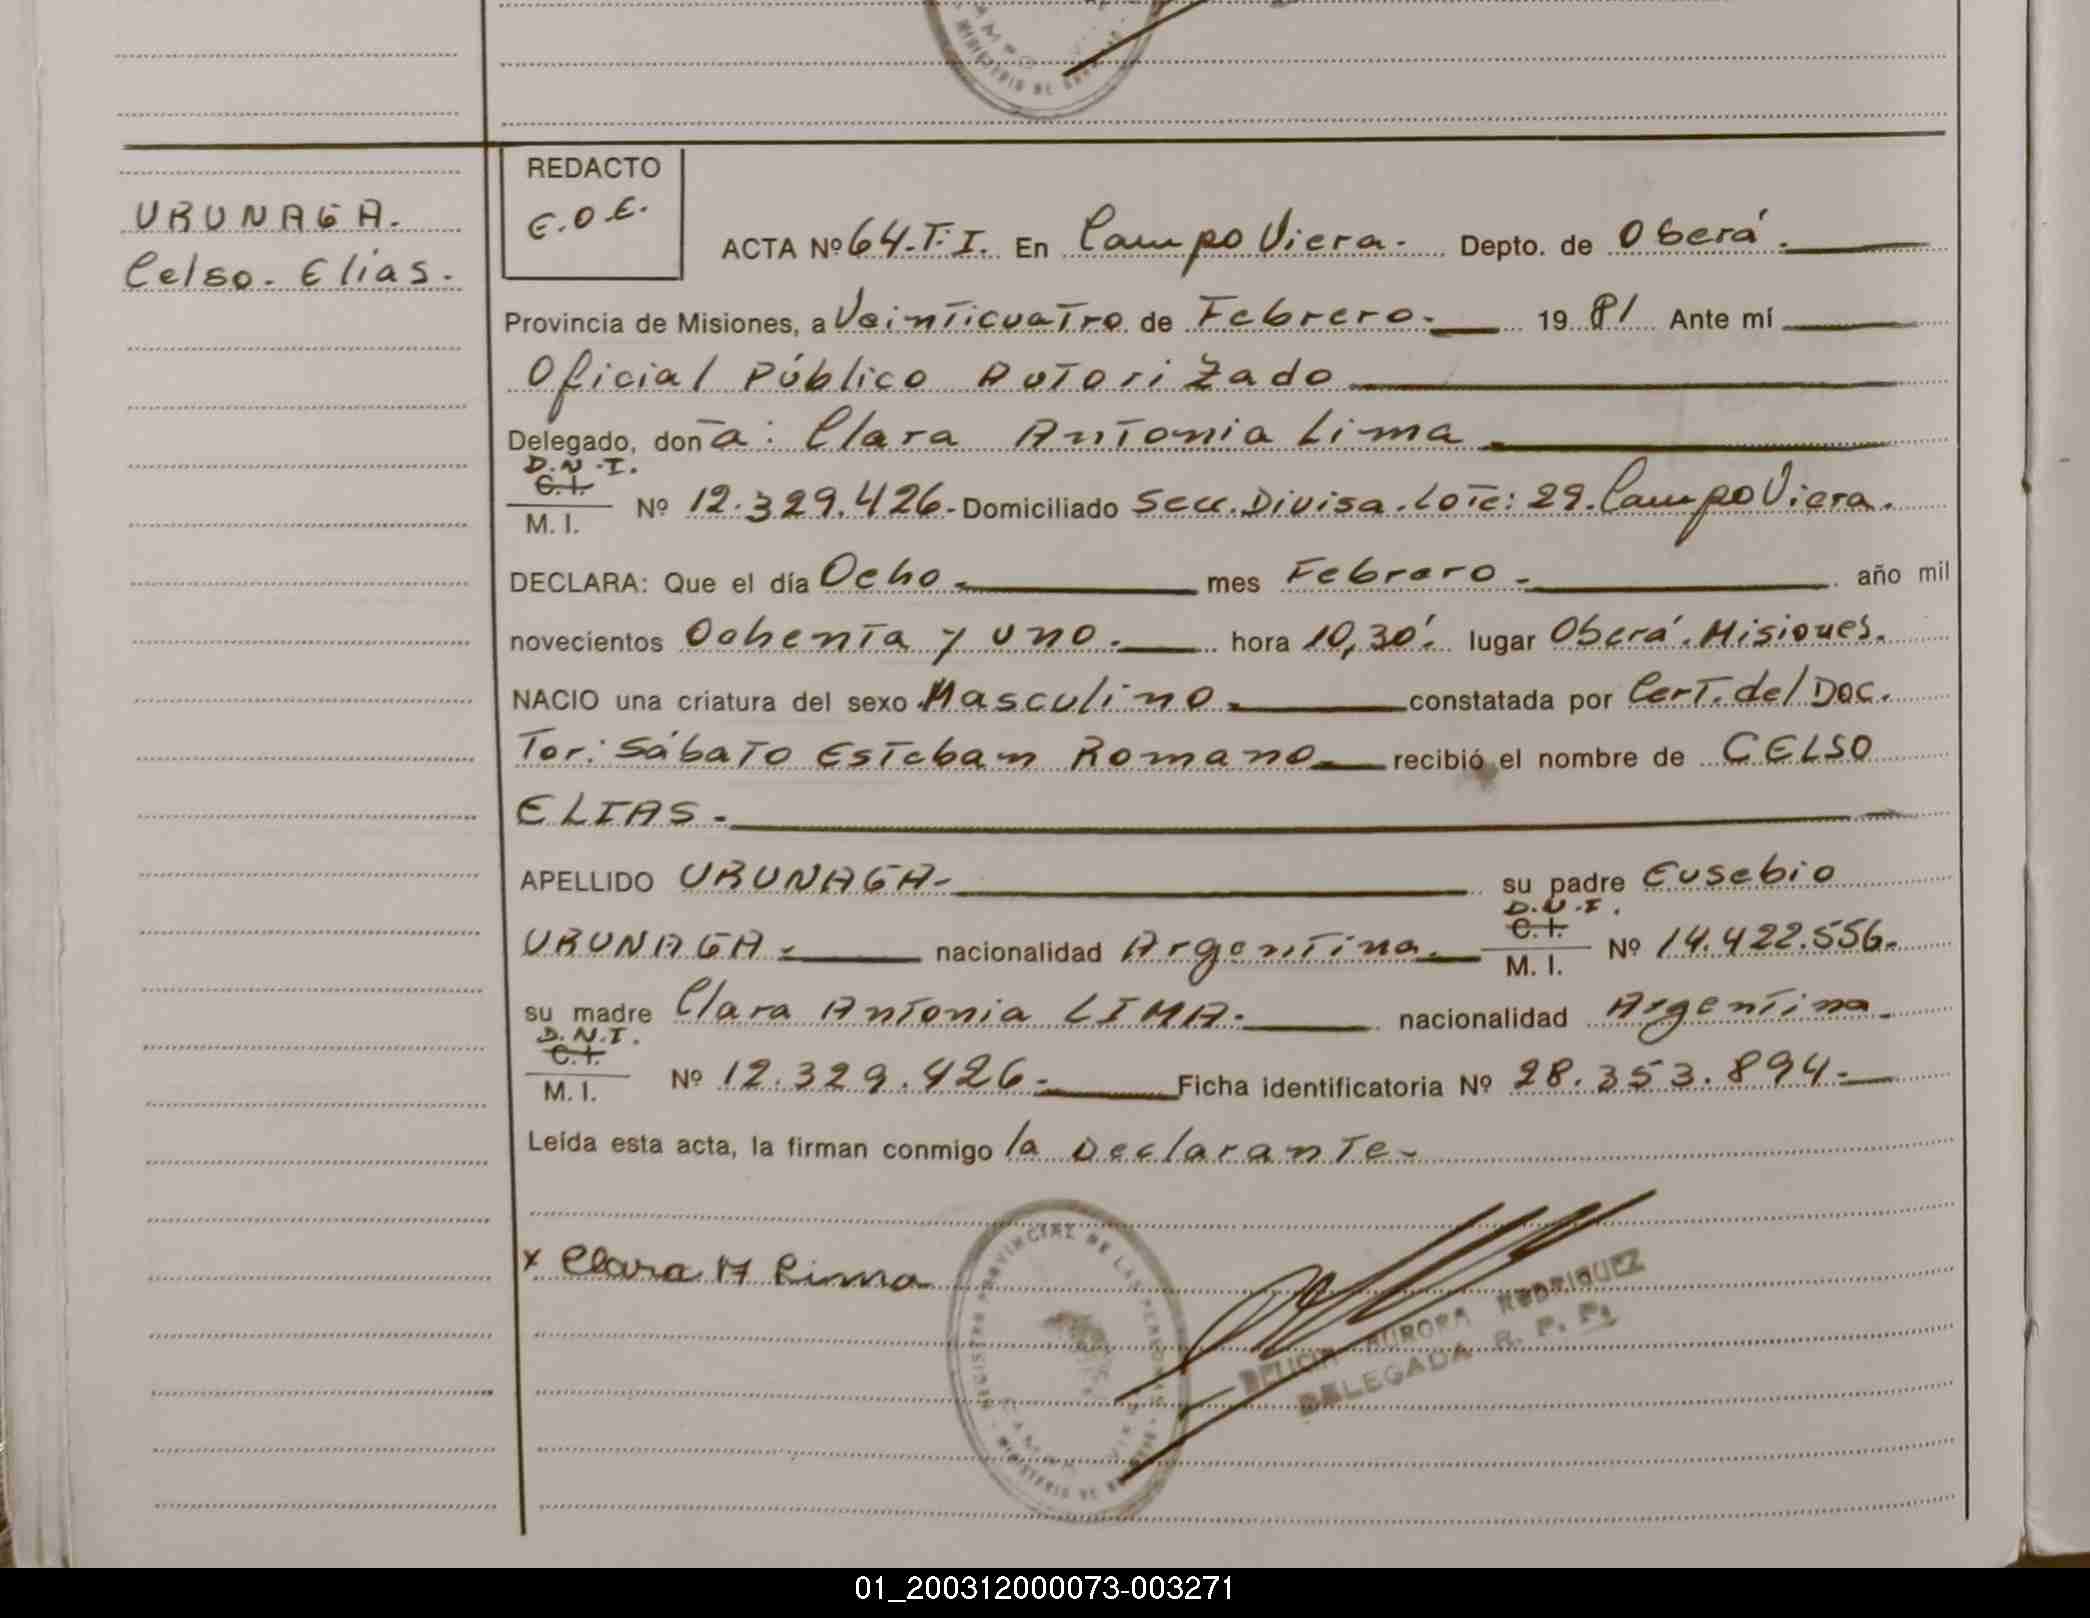 REDACTO
E.O.E.
URUNAGA.
Celso. Elias.
ACTA Nº 64.T.I. En Campo Viera. Depto. de Oberá.
Provincia de Misiones, a Veinticuatro de Febrero. 19 81 Ante mí
Oficial Público Autorizado
Delegado, don a: Clara Antonia Lima
D.N.I.
C.I.
M. I. Nº 12.329.426.- Domiciliado Secc. Divisa. Lote: 29. Campo Viera.
DECLARA: Que el día Ocho mes Febrero. año mil
novecientos Ochenta y uno. hora 10,30'. lugar Oberá. Misiones.
NACIO una criatura del sexo Masculino. constatada por Cert. del Doc.
Tor: Sábato Esteban Romano recibió el nombre de CELSO
ELIAS.
APELLIDO URUNAGA- su padre Eusebio
D.N.I.
C.I.
URUNAGA.- nacionalidad Argentina. M. I. Nº 14.422.556.
su madre Clara Antonia LIMA. nacionalidad Argentina.
D.N.I.
C.I.
M. I. Nº 12.329.426.- Ficha identificatoria Nº 28.353.894.-
Leída esta acta, la firman conmigo la Declarante-
x Clara A Lima
REGISTRO PROVINCIAL DE LAS PERSONAS
MINISTERIO DE
AURORA RODRIGUEZ
DELEGADA R. P. P.
01_200312000073-003271